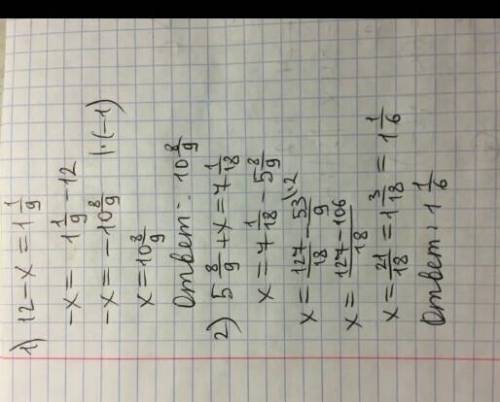 1) 12 - x = 1 1/9
-x = 1 1/9 - 12
-x = -10 8/9 |·(-1)
x = 10 8/9
Ответ: 10 8/9
2) 5 8/9 + x = 7 1/18
x = 7 1/18 - 5 8/9
x = 127/18 - 53/9 \·2
x = 127-106/18
x = 21/18 = 1 3/18 = 1 1/6
Ответ: 1 1/6